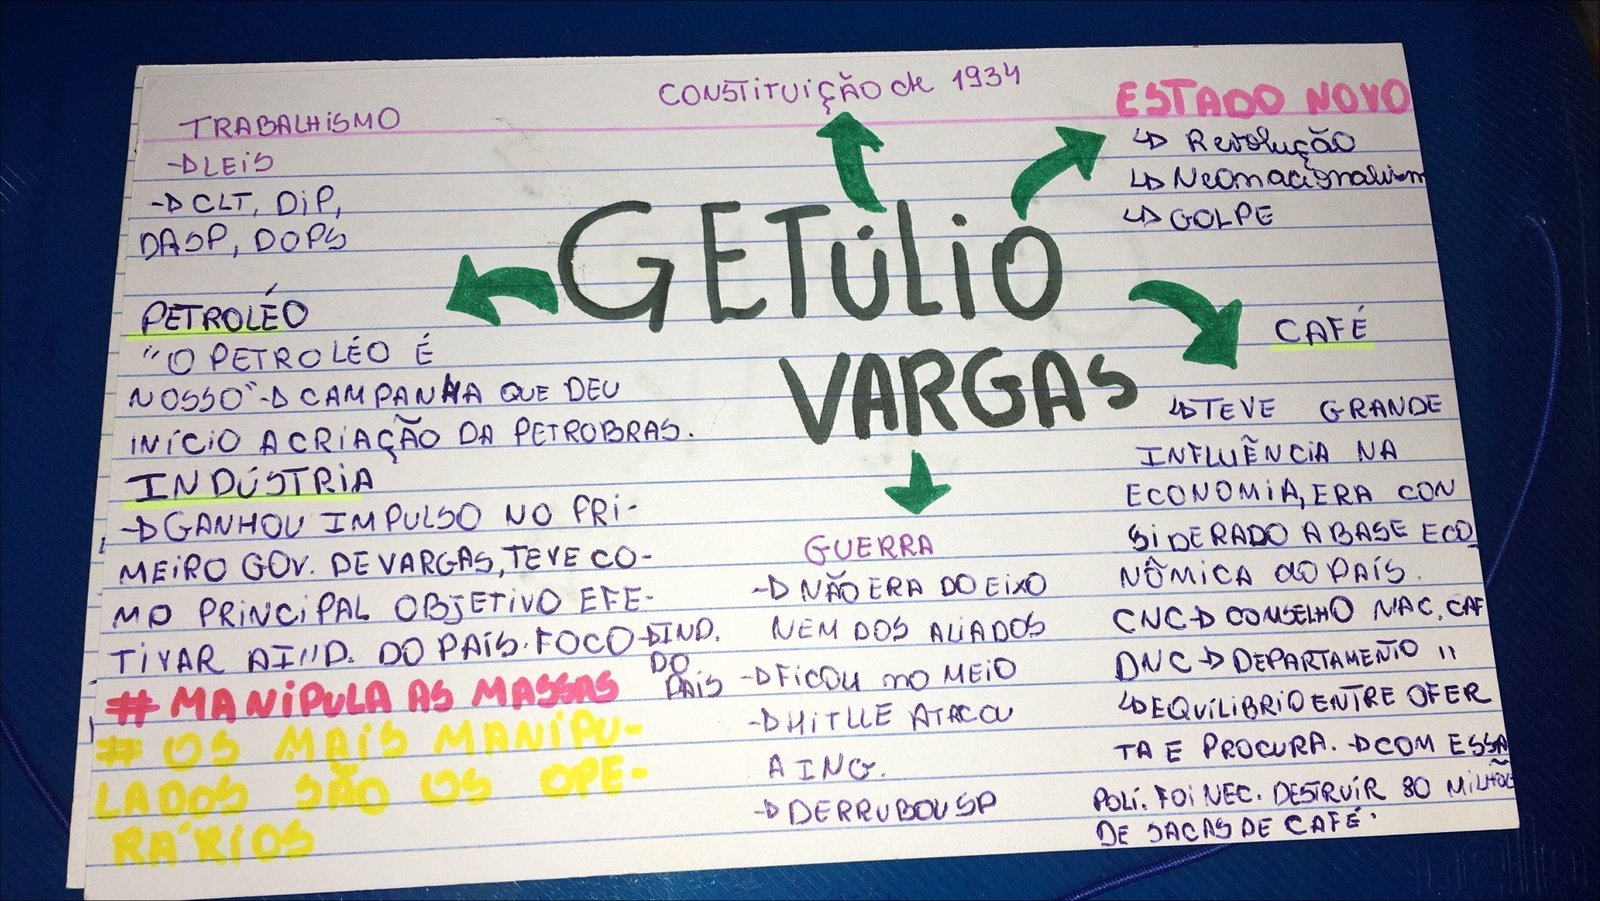 CONSTITUIÇÃO de 1934
GETÚLIO
VARGAS
TRABALHISMO
→LEIS
→CLT, DIP,
DASP, DOPS
PETROLÉO
"O PETROLÉO É
NOSSO"→CAMPANHA QUE DEU
INÍCIO A CRIAÇÃO DA PETROBRAS.
INDÚSTRIA
→GANHOU IMPULSO NO PRI-
MEIRO GOV. DE VARGAS, TEVE CO-
MO PRINCIPAL OBJETIVO EFE-
TIVAR A IND. DO PAÍS. FOCO→IND.
DO
PAÍS
# MANIPULA AS MASSAS
# OS MAIS MANIPU-
LADOS SÃO OS OPE-
RÁRIOS
GUERRA
→NÃO ERA DO EIXO
NEM DOS ALIADOS
→FICOU NO MEIO
→HITLLE ATACOU
A ING.
→DERRUBOU SP
ESTADO NOVO
↳ Revolução
↳ Neonacionalism
↳ GOLPE
CAFÉ
↳TEVE GRANDE
INFLUÊNCIA NA
ECONOMIA, ERA CON
SIDERADO A BASE ECO
NÔMICA do PAÍS.
CNC→CONSELHO NAC. CAF
DNC→DEPARTAMENTO "
↳EQUILIBRIO ENTRE OFER
TA E PROCURA. →COM ESSA
POLÍ. FOI NEC. DESTRUIR 80 MILHÕE
DE SACAS DE CAFÉ.